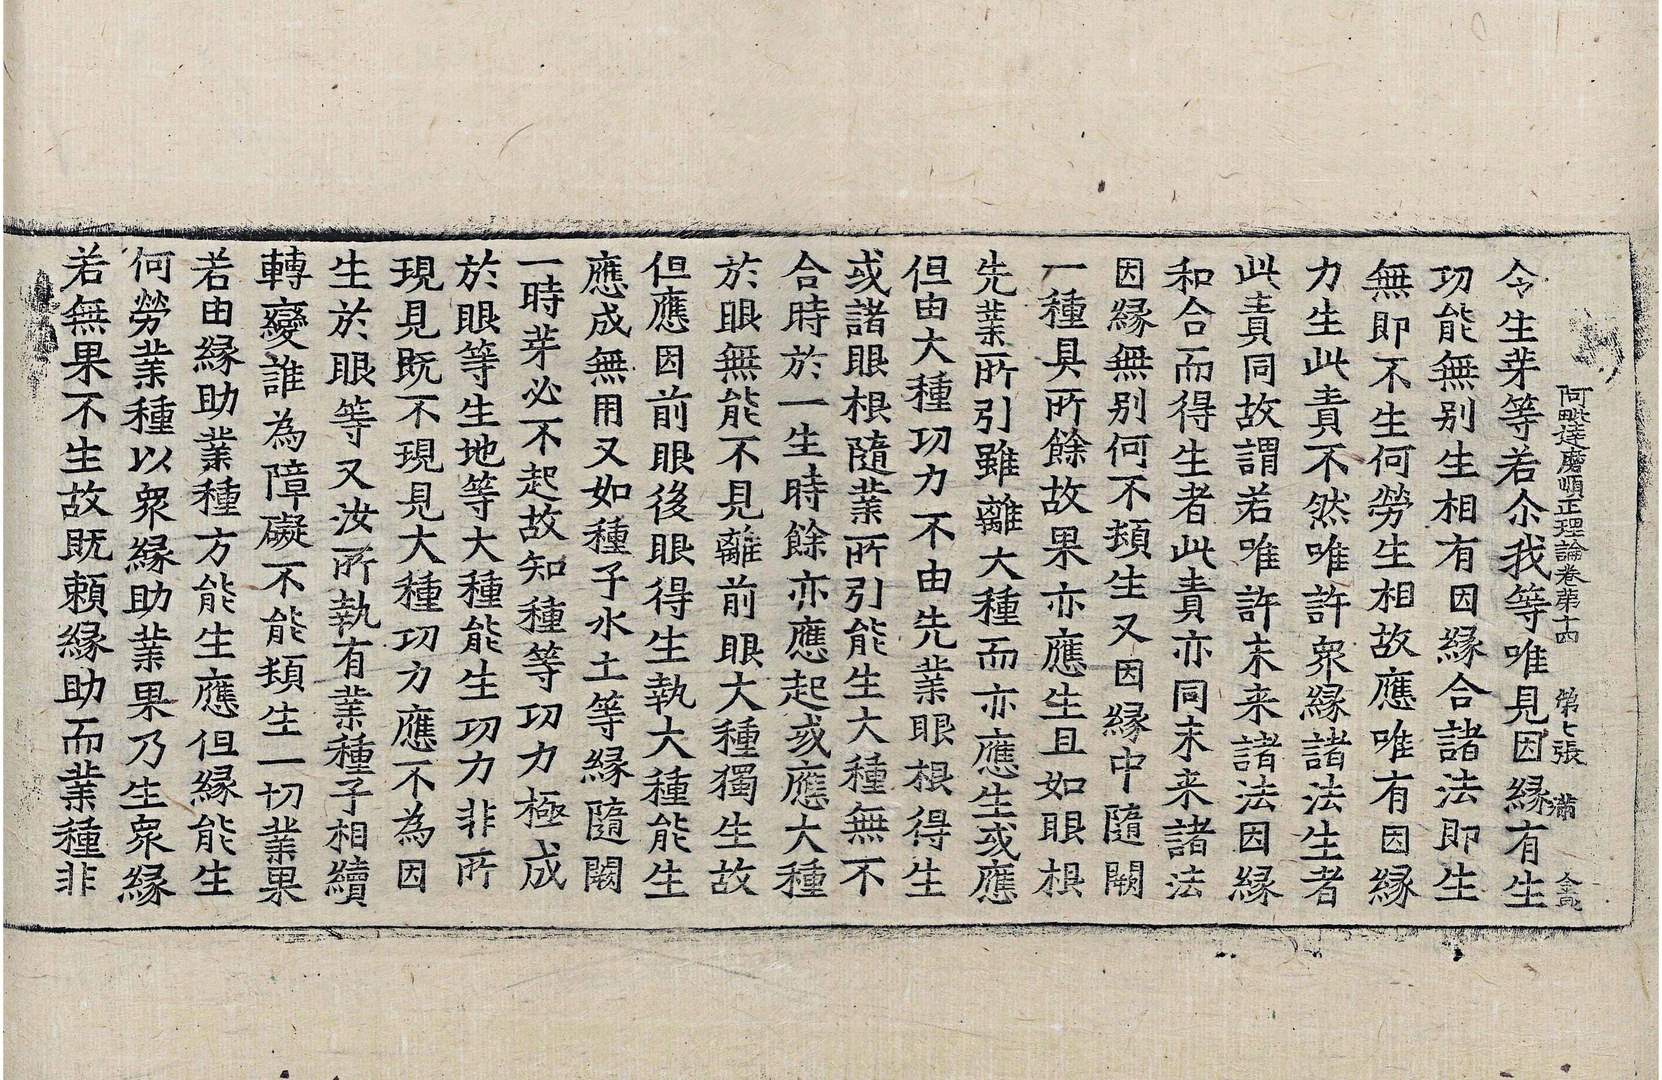 阿毗達磨順正理論卷第十四 第七張 滿
令生芽等若尒我等唯見因縁有生
功能無别生相有因縁合諸法即生
無即不生何勞生相故應唯有因縁
力生此責不然唯許衆縁諸法生者
此責同故謂若唯許未来諸法因縁
和合而得生者此責亦同未来諸法
因縁無别何不頖生又因縁中隨闕
一種具所餘故果亦應生且如眼根
先業所引雖離大種而亦應生或應
但由大種功力不由先業眼根得生
或諸眼根隨業所引能生大種無不
合時於一生時餘亦應起或應大種
於眼無能不見離前眼大種獨生故
但應因前眼後眼得生執大種能生
應成無用又如種子水土等縁隨闕
一時芽必不起故知種等功力極成
於眼等生地等大種能生功力非所
現見既不現見大種功力應不為因
生於眼等又汝所執有業種子相續
轉變誰為障礙不能頖生一切業果
若由縁助業種方能生應但縁能生
何勞業種以衆縁助業果乃生衆縁
若無果不生故既頼縁助而業種非